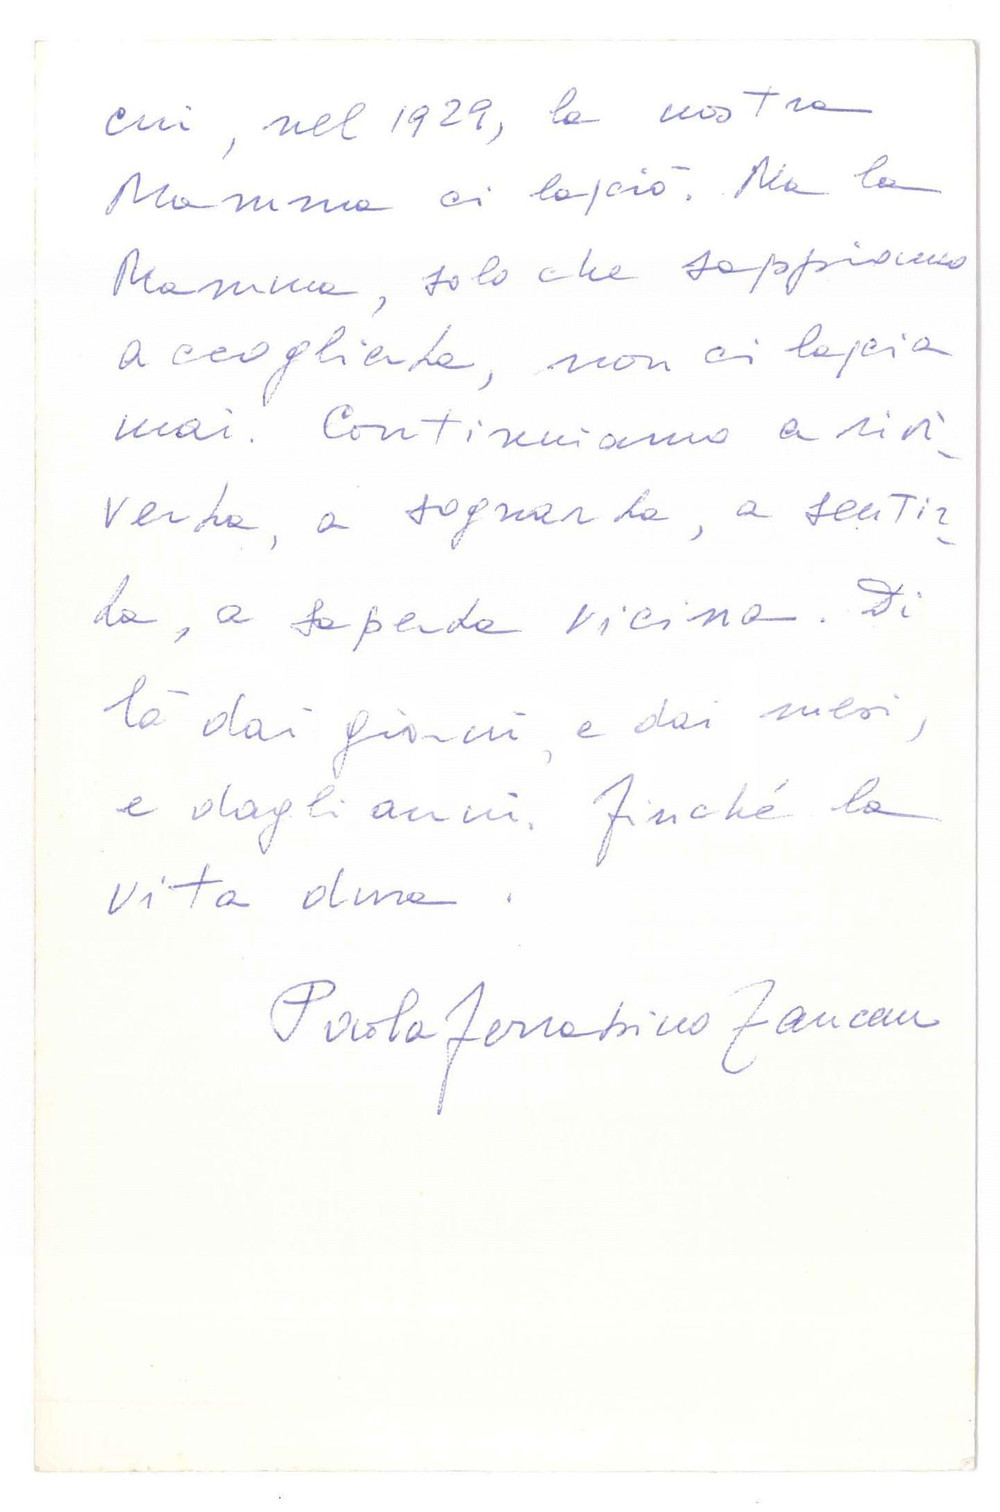 cui, nel 1929, la nostra
Mamma ci lasciò. Ma la
Mamma, solo che sappiamo
accoglierla, non ci lascia
mai. Continuiamo a rivi-
verla, a sognarla, a sentir-
la, a saperla vicina. Di
là dai giorni, e dai mesi,
e dagli anni. Finché la
vita dura.
Paola Ferratino Zancan